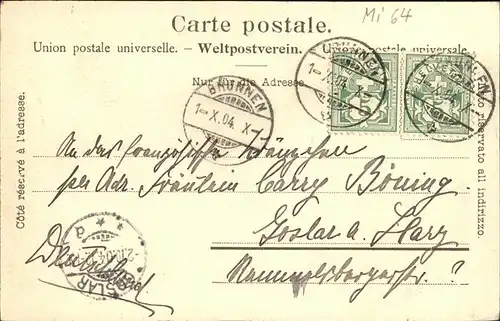 Carte postale.
Mi 64
Union postale universelle. – Weltpostverein. – Unione postale universale
Nur für die Adresse.
BRUNNEN
1-.X.04. X-
BRUNNEN
1-.X.04. X-
Côté réservé à l'adresse.
riservato all indirizzo.
An das französische Kränzchen
per Adr. Fräulein Carry Böning.
Goslar a. Harz
Rammelsbergerstr. ?
Deutschland
GOSLAR